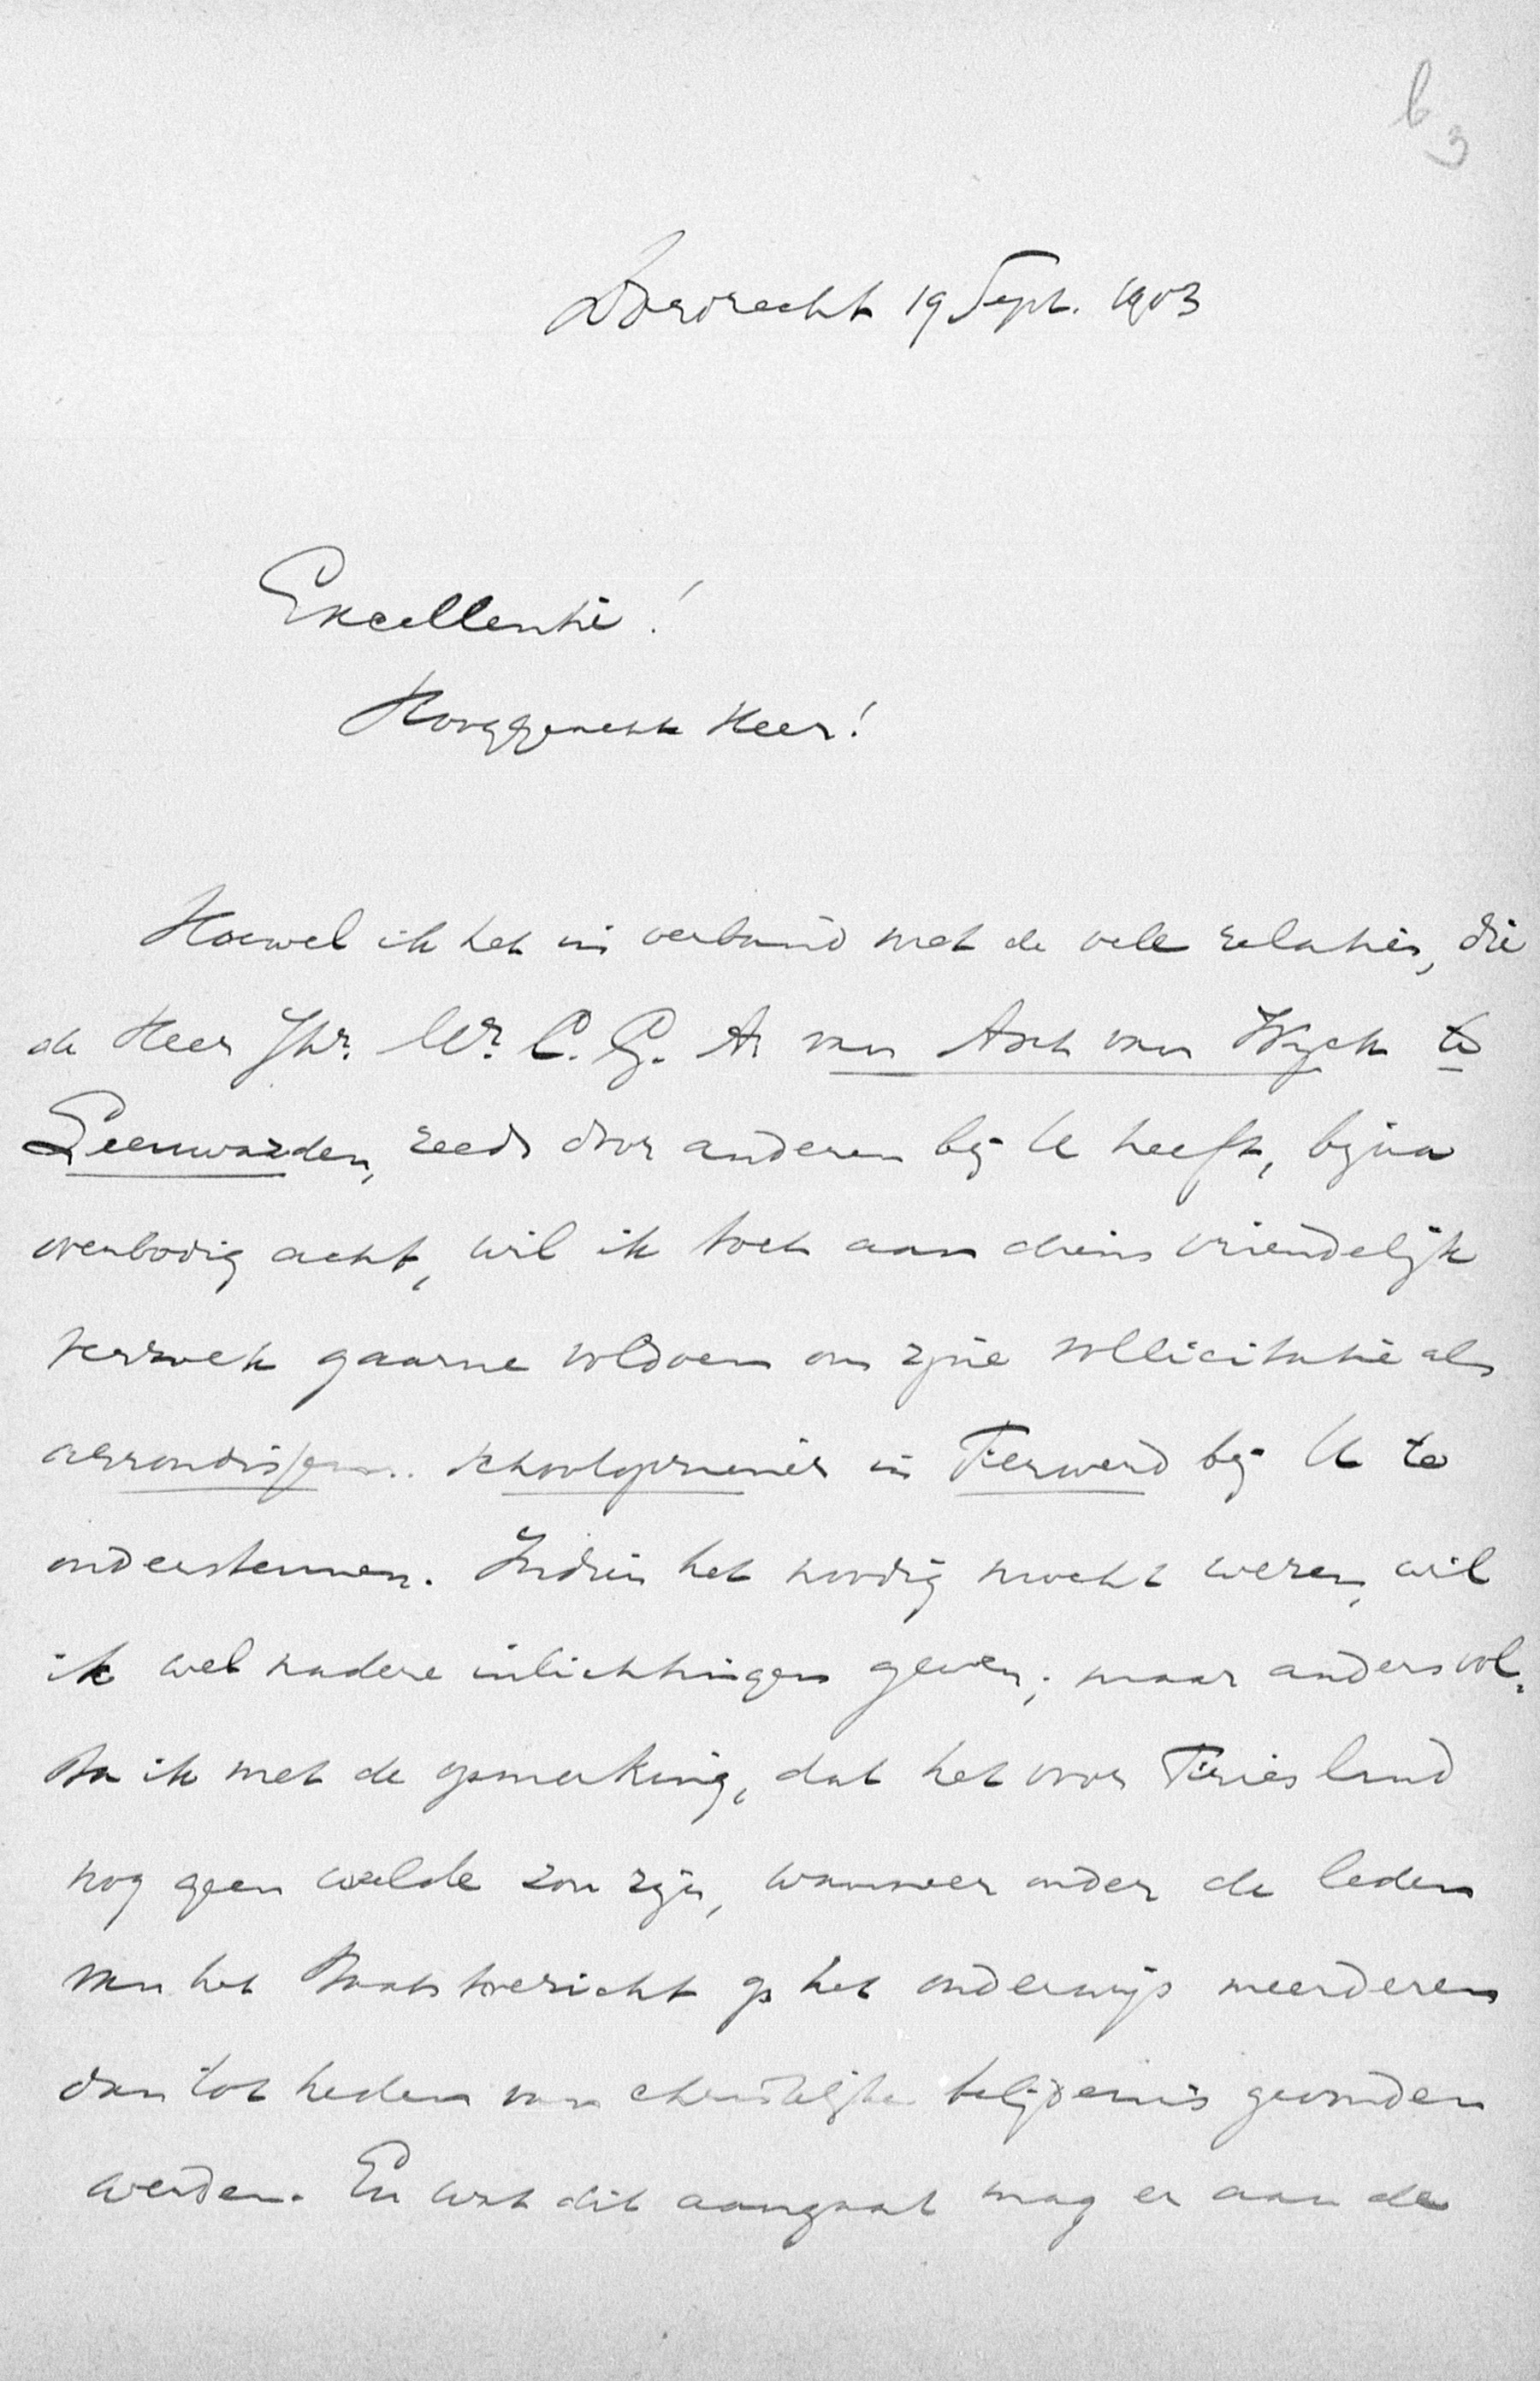 b
3
Dordrecht 19 Sept. 1903
Excellentie!
Hooggeachte Heer!
Hoewel ik het in verband met de vele relatiën, die
de Heer Jhr. Mr. C. G. A. van Asch van Wyck te
Leeuwarden, reeds door anderen bij U heeft, bijna
overbodig acht, wil ik toch aan diens vriendelijk
verzoek gaarne voldoen om zijne sollicitatie als
arrondissem. schoolopziener in Ferwerd bij U te
ondersteunen. Indien het noodig mocht wezen, wil
ik wel nadere inlichtingen geven; maar anders vol-
sta ik met de opmerking, dat het voor Friesland
nog geen weelde zou zijn, wanneer onder de leden
van het Staatstoezicht op het onderwijs meerderen
dan tot heden van christelijke belijdenis gevonden
werden. En wat dit aangaat mag er aan de